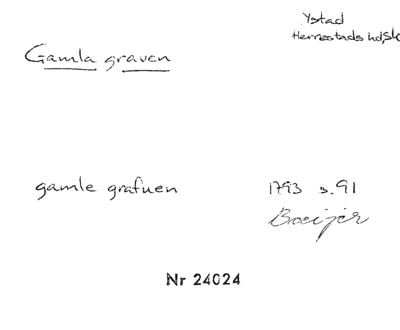 Ystad
Herrestads hd, Sk
Gamla graven
gamle grafuen
1793 s. 91
Nr 24024